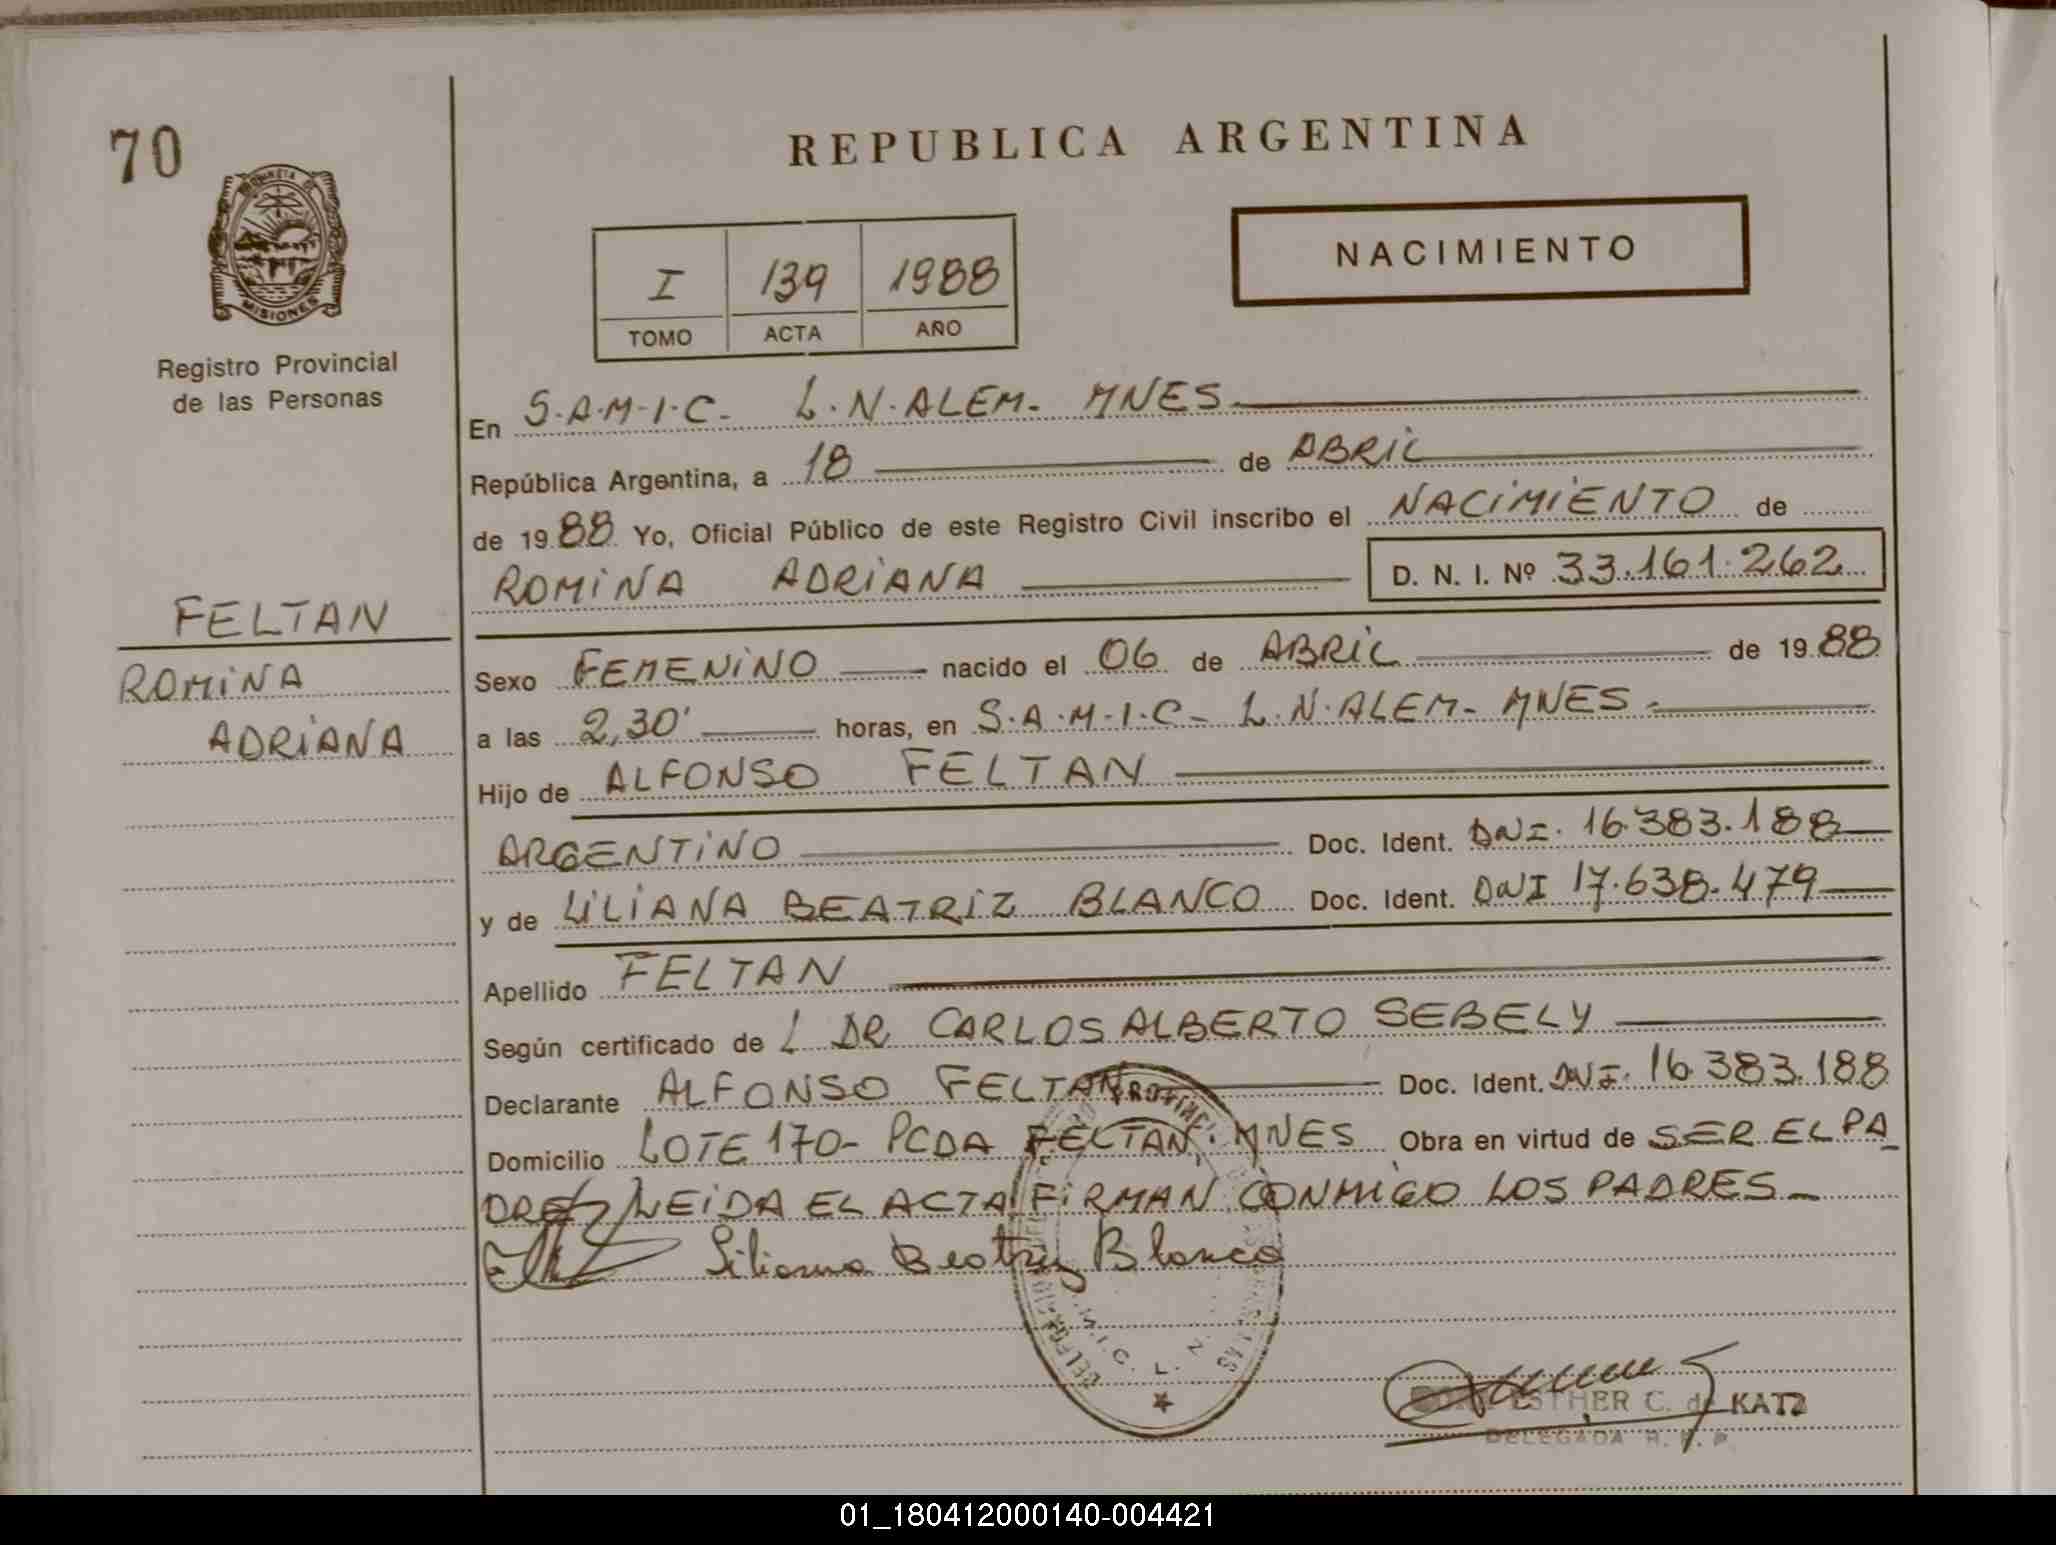 70
REPUBLICA ARGENTINA
PROVINCIA DE
MISIONES
Registro Provincial
de las Personas
I 139 1988
TOMO ACTA AÑO
NACIMIENTO
En S.A.M.I.C. L.N.ALEM. MNES.
República Argentina, a 18 de ABRIL
de 1988 Yo, Oficial Público de este Registro Civil inscribo el NACIMIENTO de
ROMINA ADRIANA D. N. I. Nº 33.161.262
FELTAN
ROMINA
ADRIANA
Sexo FEMENINO nacido el 06 de ABRIL de 1988
a las 2,30' horas, en S.A.M.I.C. L.N.ALEM. MNES.
Hijo de ALFONSO FELTAN
ARGENTINO Doc. Ident. DNI. 16.383.188
y de LILIANA BEATRIZ BLANCO Doc. Ident. DNI 17.638.479
Apellido FELTAN
Según certificado de L DR CARLOS ALBERTO SEBELY
Declarante ALFONSO FELTAN Doc. Ident. DNI. 16.383.188
Domicilio LOTE 170- PCDA FELTAN. MNES Obra en virtud de SER EL PA_
DRE LEIDA EL ACTA FIRMAN CONMIGO LOS PADRES_
Liliana Beatriz Blanco
ESTHER C. de KATZ
DELEGADA R. P. P.
01_180412000140-004421